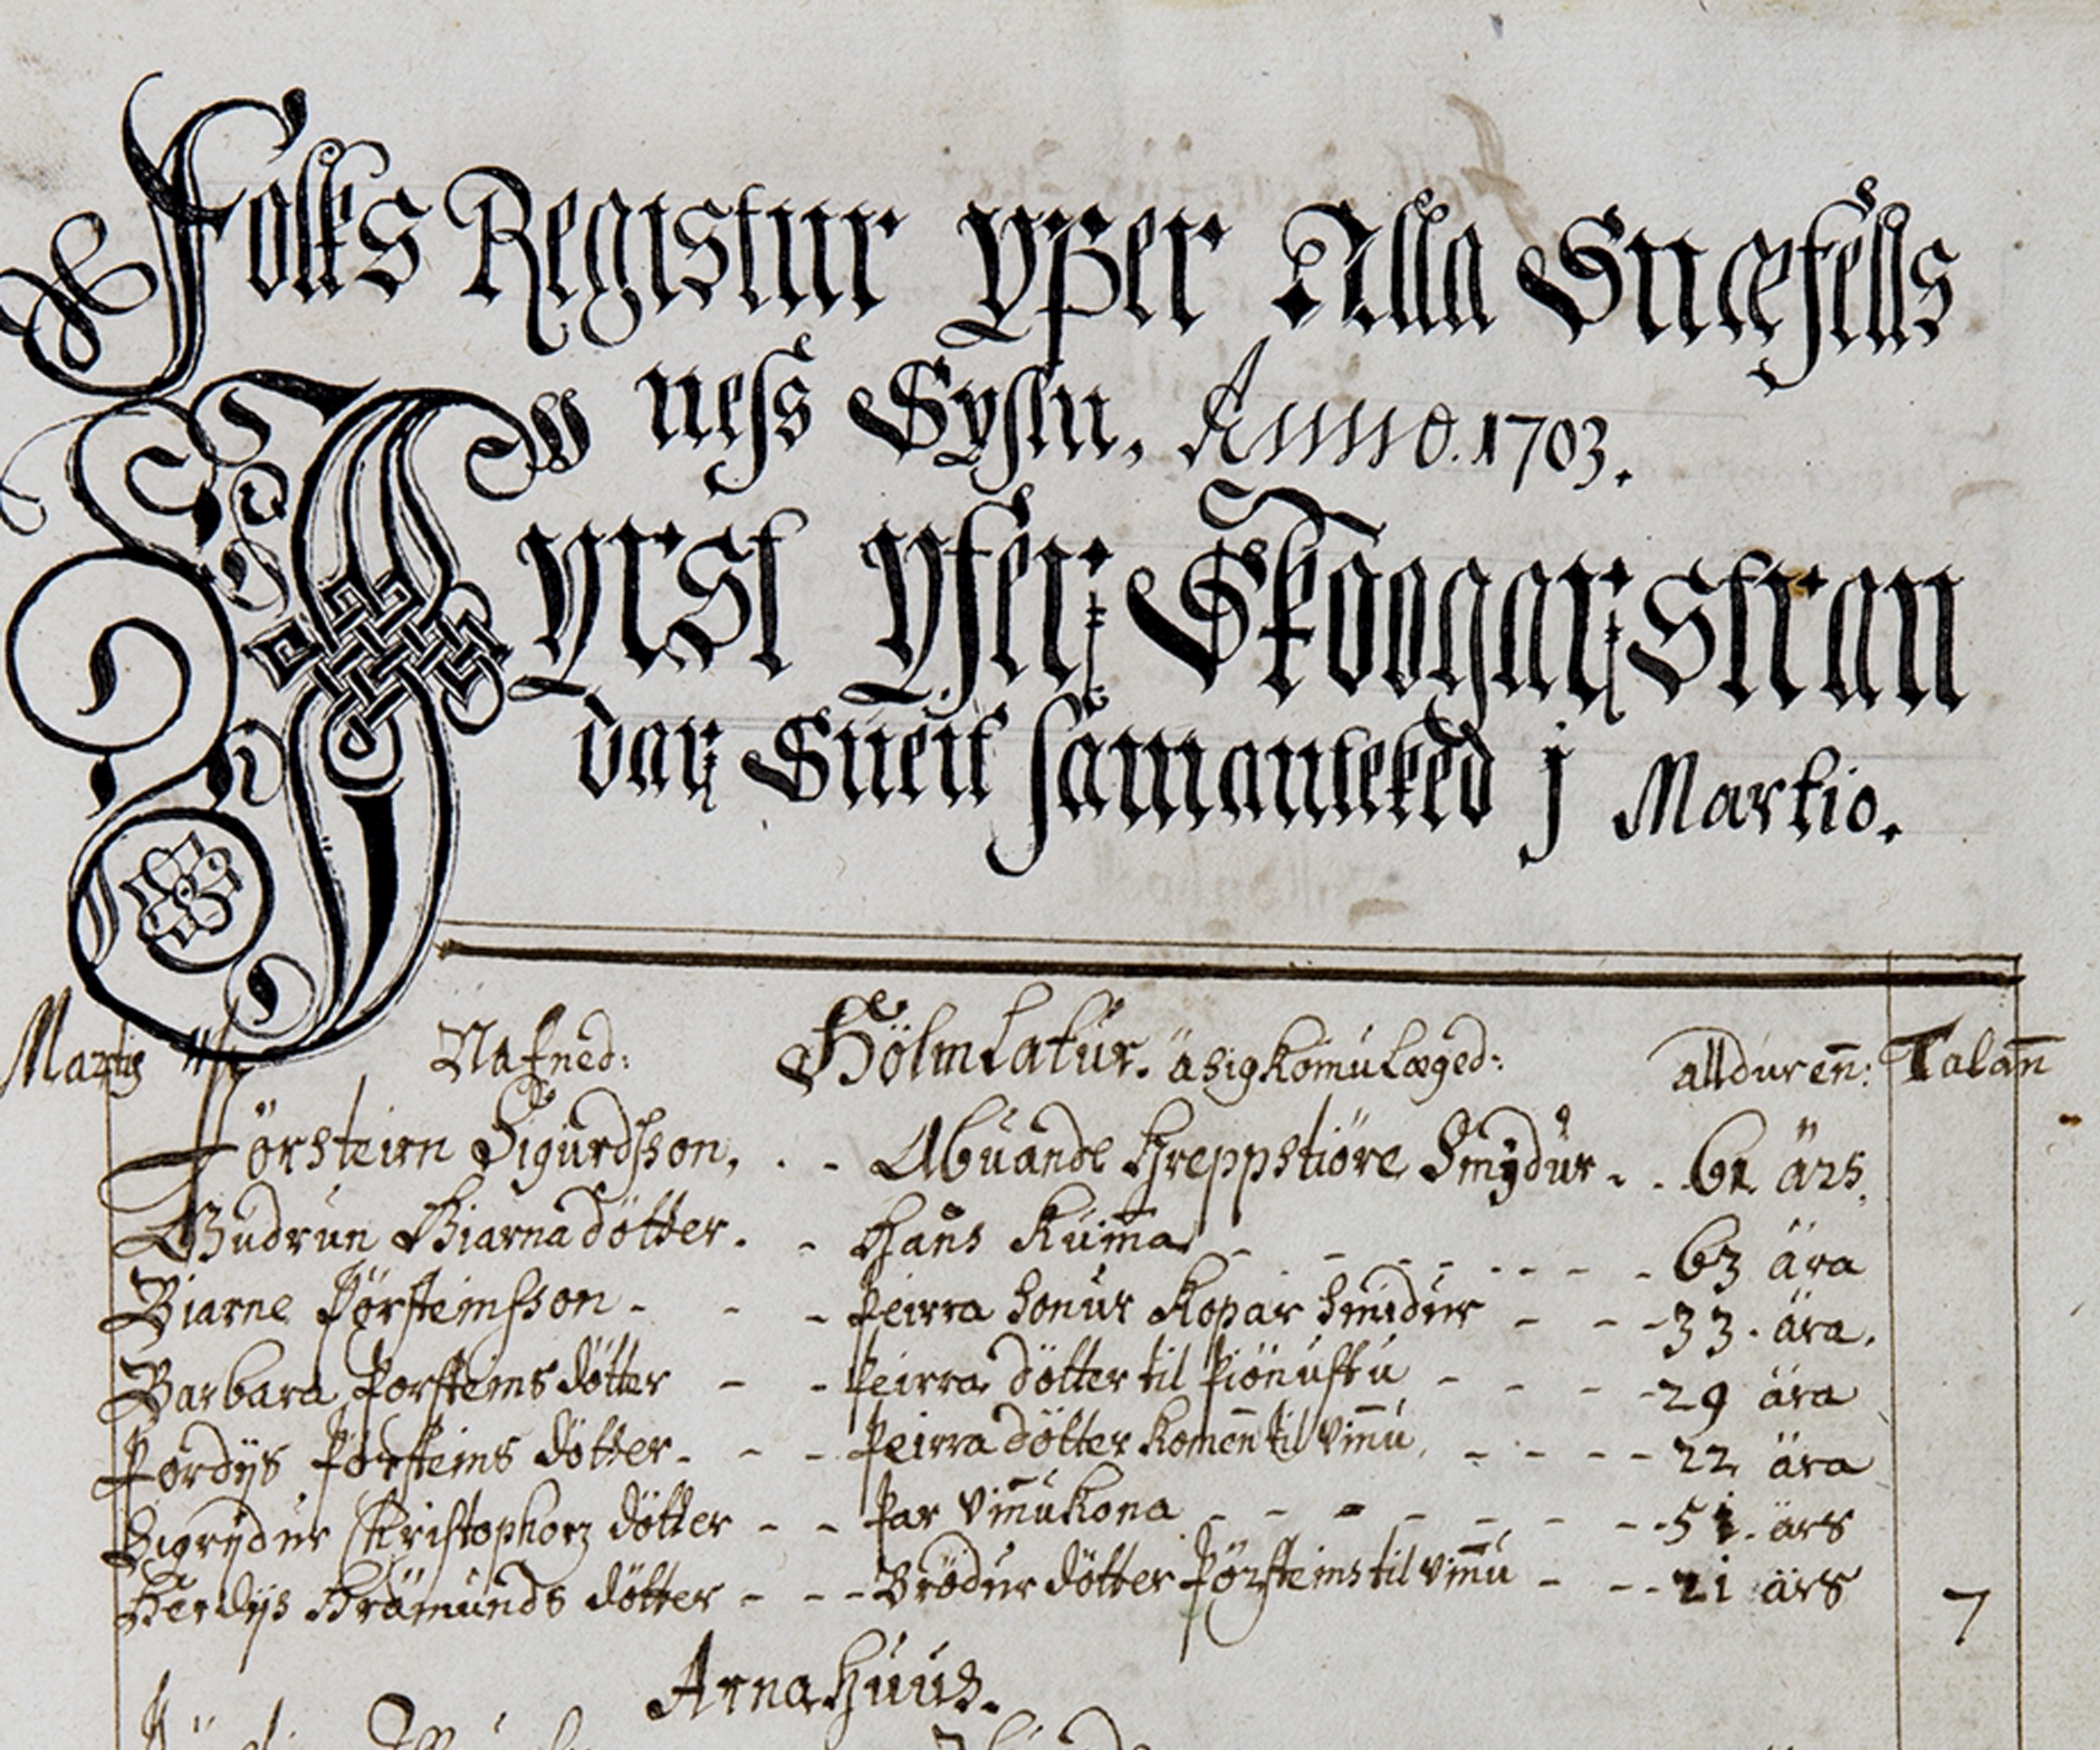 Folks Registur yfſer Alla Snæfells
neſs Syſlu, Anno. 1703.
Fyrst yfer Skoogar stran
dar Sueit samanteked j Martio.
Nafned: Hölmlatur. äsigkomulæged: alldureñ: Talañ
Þörsteirn Sigurdſson, Abuande Hreppstiöre Smijdur 61 ärs,
Gudrun Biarnadötter. Hans Kuiña 63 ära
Biarne Þörsteinsson Þeirra Sonur Kopar Smidur 33. ära.
Barbara Þorsteinsdötter Þeirra dötter til Þiönustu 29 ära
Þordijs Þorsteins dötter. Þeirra dötter komeñ til viñu 22 ära
Sigrijdur Kristophors dötter Þar viñukona 51. ärs
Herdijs Hrämunds dötter Brödur dötter Þörsteins til viñu 21 ärs 7
Arnahuus.